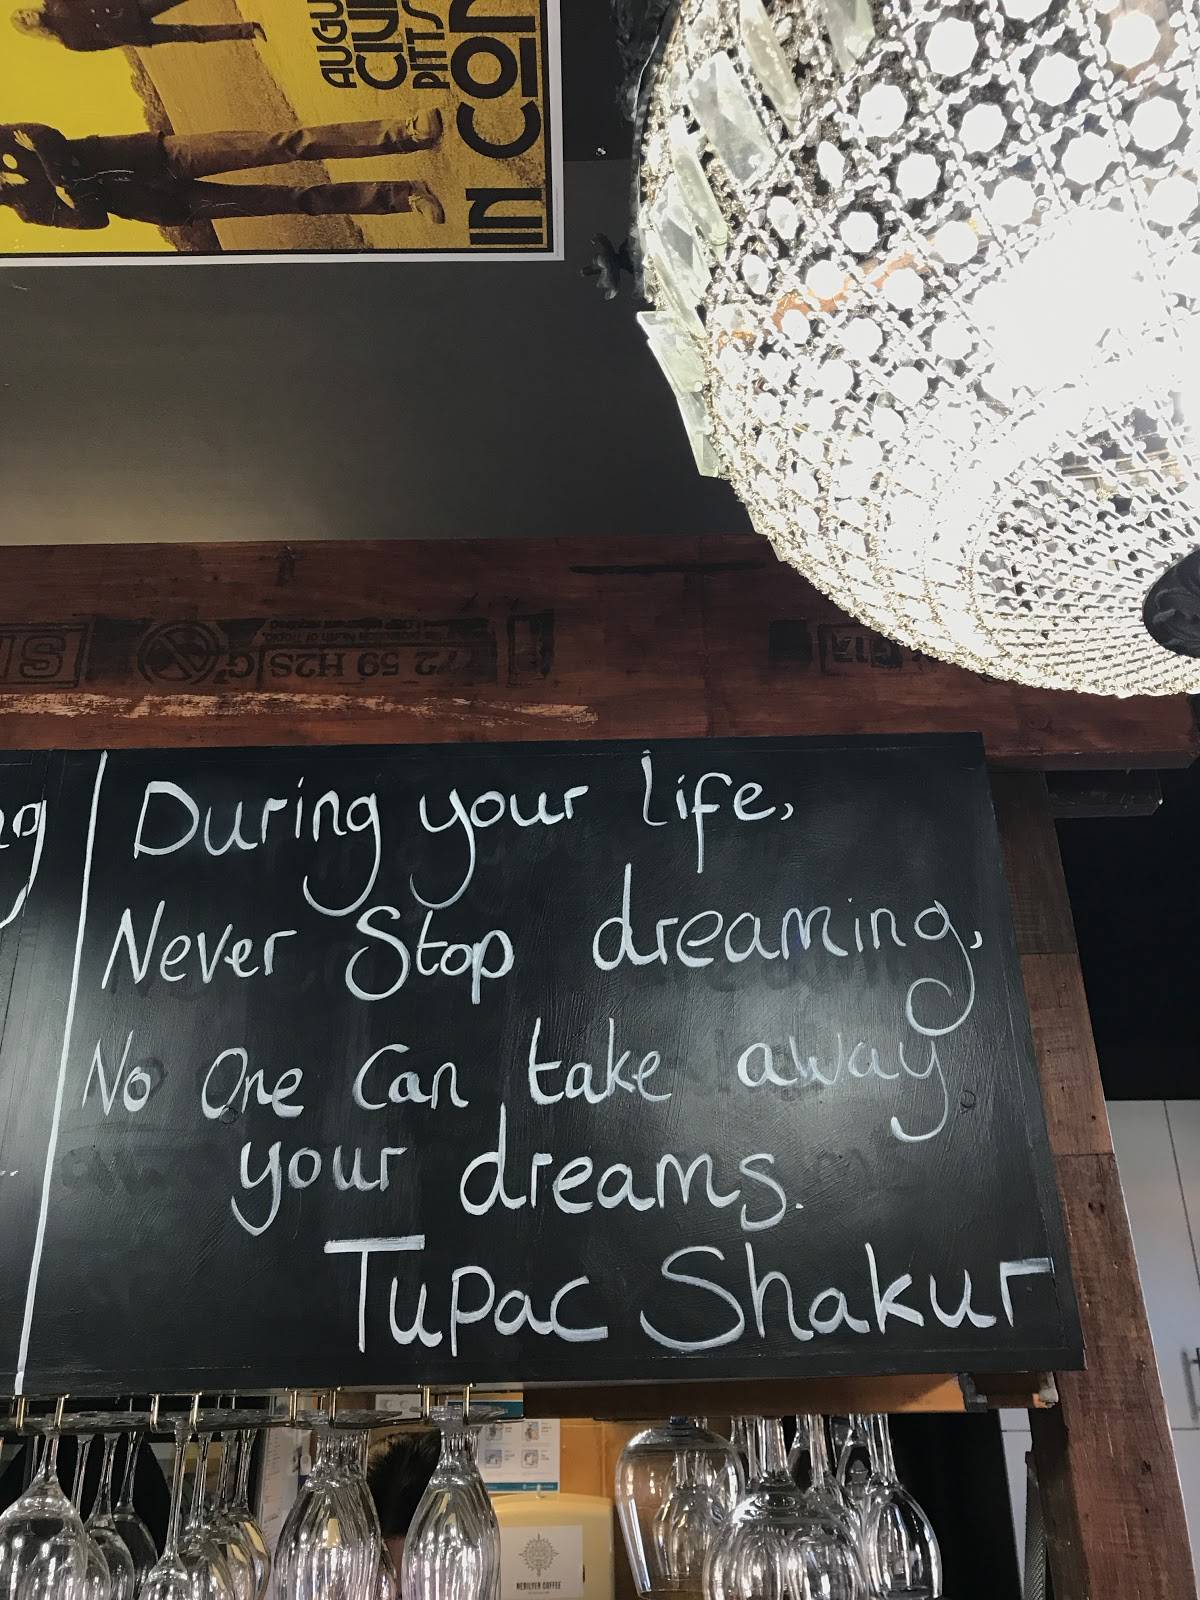 AUGU
CIVI
PITTS
IN CON
SI
72 59 H2S G
During your life,
Never Stop dreaming,
No One Can take away
your dreams.
Tupac Shakur
ng
NERILYEN COFFEE